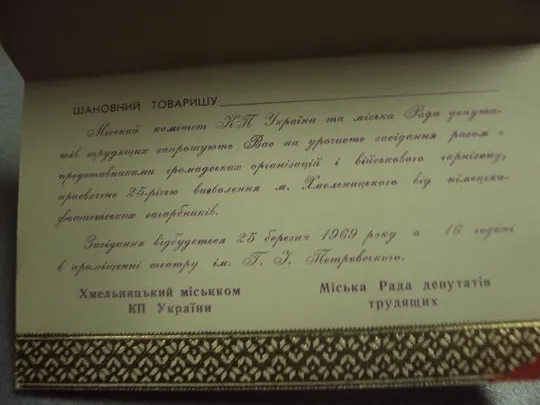 ШАНОВНИЙ ТОВАРИШУ
Міский комітет КП України та міська Рада депута-
тів трудящих запрошують Вас на урочисте засідання разом з
представниками громадських організацій і військового гарнізону,
присвячене 25-річчю визволення м. Хмельницького від німецько-
фашистських загарбників.
Засідання відбудеться 25 березня 1969 року о 16 годині
в приміщенні театру ім. Г. І. Петровського.
Хмельницький міськком
КП України
Міська Рада депутатів
трудящих